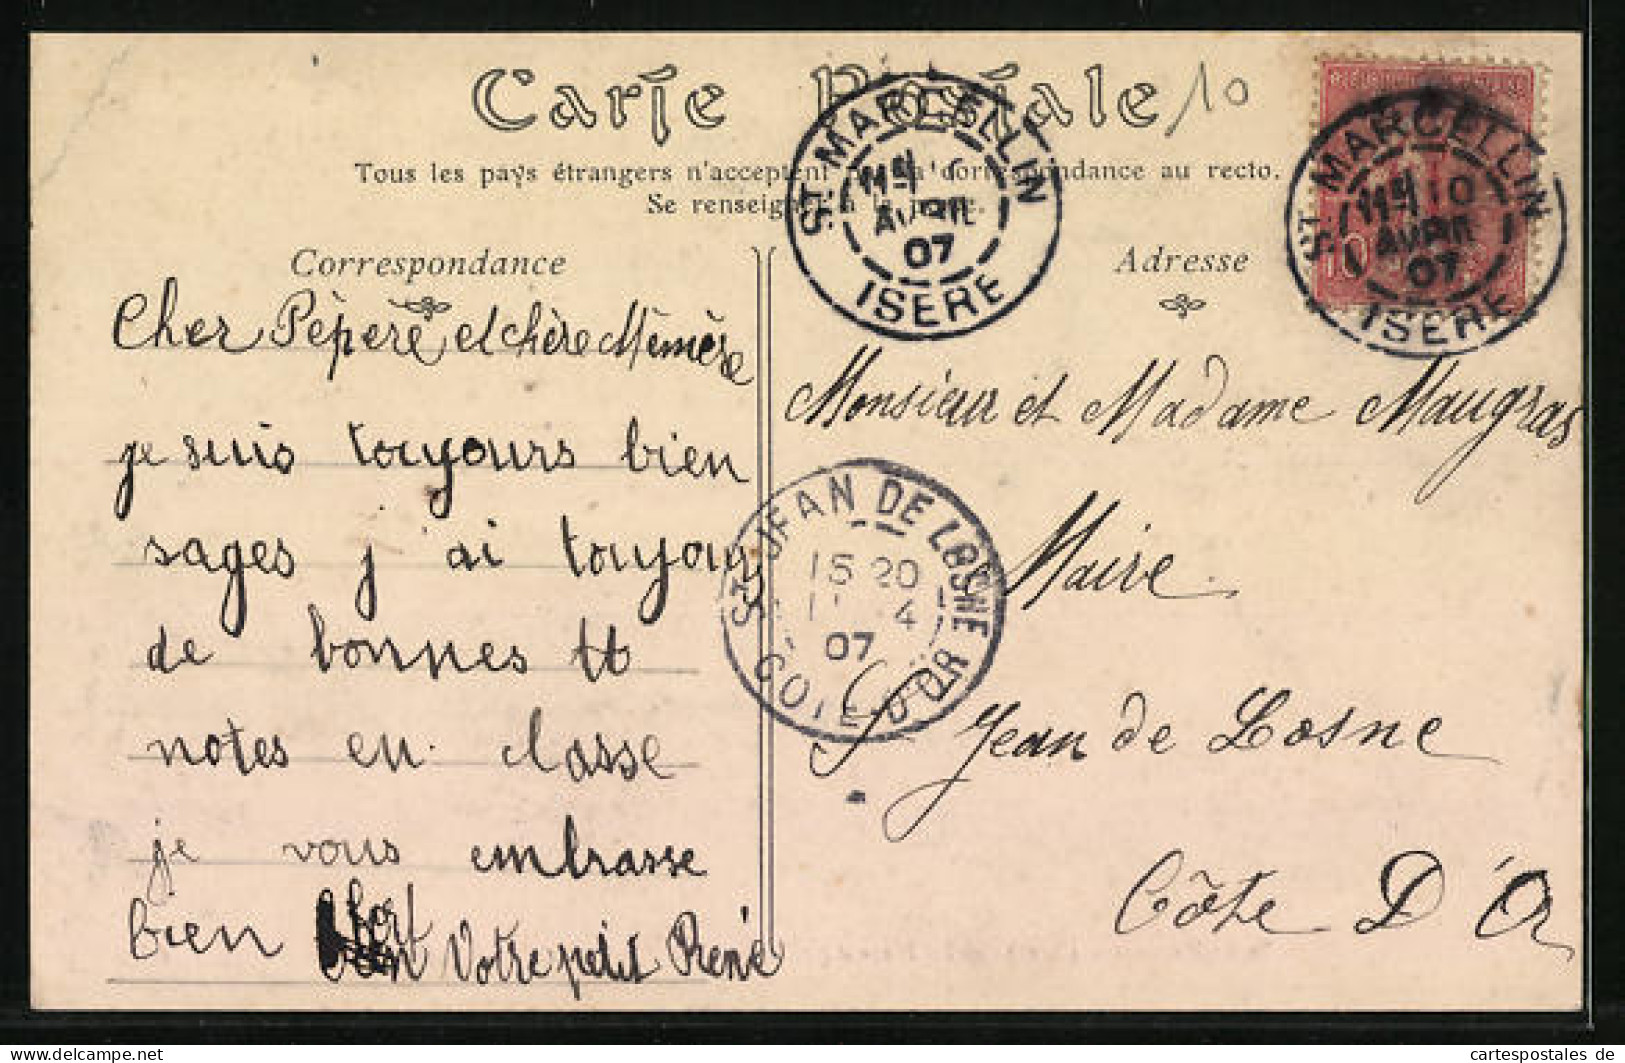 Carte Postale
10
Tous les pays étrangers n'acceptent pas la correspondance au recto.
Se renseigner à la poste.
Correspondance
Cher Pépère et chère Mémère
je suis toujours bien
sages j'ai toujours
de bonnes tt
notes en classe
je vous embrasse
bien fort
Votre petit René
Adresse
Monsieur et Madame Maugras
Maire
St Jean de Losne
Côte D'Or
ST MARCELLIN
AVRIL
07
ISERE
ST MARCELLIN
10
AVRIL
07
ISERE
10
ST JEAN DE LOSNE
15 20
4
07
COTE D'OR
cartespostales de
www.delcampe.net